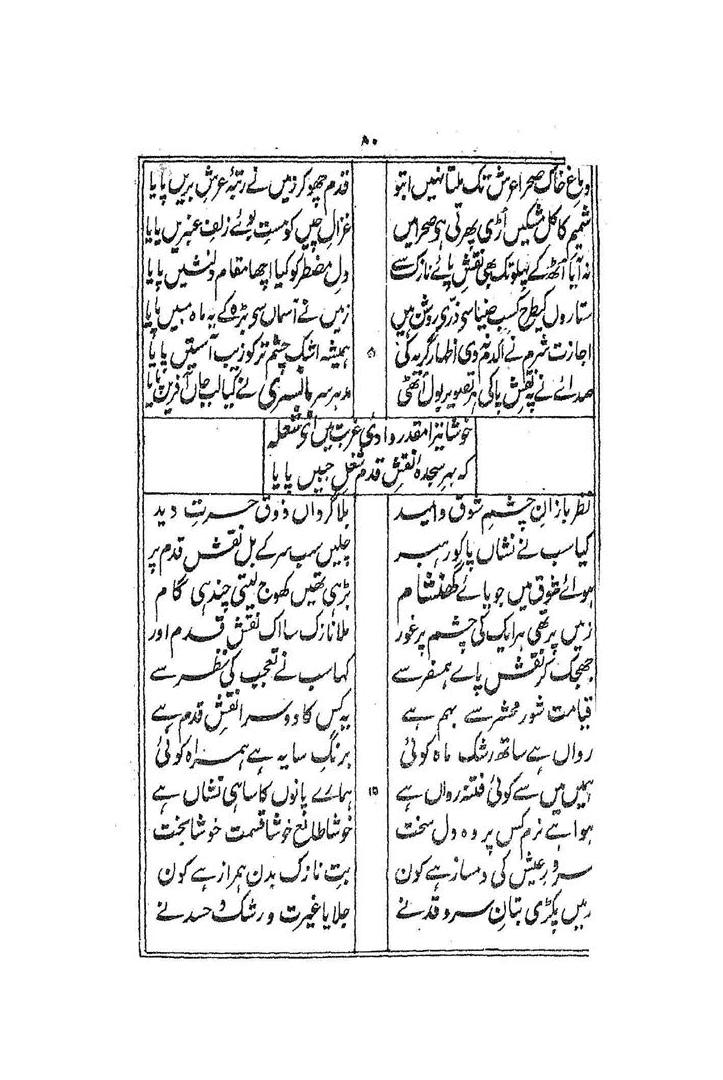 ۸۰
دماغ خاک صحرا عرش تک ملتا نہیں ابتو قدم چھو کر زمیں نے رتبۂ عرش بریں پایا
شمیم کاکل مشکیں اُڑی پھرتی ہو صحرا میں غزال چیں کو مست بوئے زلف عنبریں پایا
نہ آیا اُٹھ کے پہلو تک بھی نقش پائے نازک سے دل مضطر کو کیا اچھا مقام دلنشیں پایا
ستاروں کیطرح کسب ضیا سی ذرّی روشن ہیں زمیں نے آسماں سی بڑہ کے یہ ماہ مبیں پایا
اجازت شرم نے اکدم نہ دی اظہار گریہ کی ہمیشہ اشک چشم تر کو زیب آستیں پایا
۵
صدائے نے پہ نقش پا کی ہر تصویر بول اُٹھی بانسری نے کیا لب جاں آفریں پایا
خوشا تیرا مقدر وادیٔ غربت میں اُی شعلہ
کہ بہر سجدہ نقش قدم شغل جبیں پایا
نظر بازان چشم شوق و امید بلا گرداں ذوق حسرت دید
کیا سب نے نشاں پا کو رہبر چلیں سب سر کے بل نقش قدم پر
ہوائے شوق میں جویائے گھنشام بڑہی تھیں کھوج لیتی چند ہی گام
زمیں پر تھی ہر ایک کی چشم پر غور ملا نازک سا اک نقش قدم اور
جھجک کر نقش پاے ہمسفر سے کہا سب نے تعجب کی نظر سے
قیامت شور محشر سے بہم ہے یہ کس کا دوسرا نقش قدم ہے
رواں ہے ساتھ رشک ماہ کوئی برنگ سایہ ہے ہمراہ کوئی
ہمیں میں سے کوئی فتنہ رواں ہے ہمارے پانوں کا سا ہی نشاں ہے
۱۵
ہوا ہے نرم کس پر وہ دل سخت خوشا طالع خوشا قسمت خوشا بخت
سرور عیش کی دمساز ہے کون بت نازک بدن ہمراز ہے کون
رہیں پکڑی بتان سرو قد نے جلایا غیرت و رشک و حسد نے